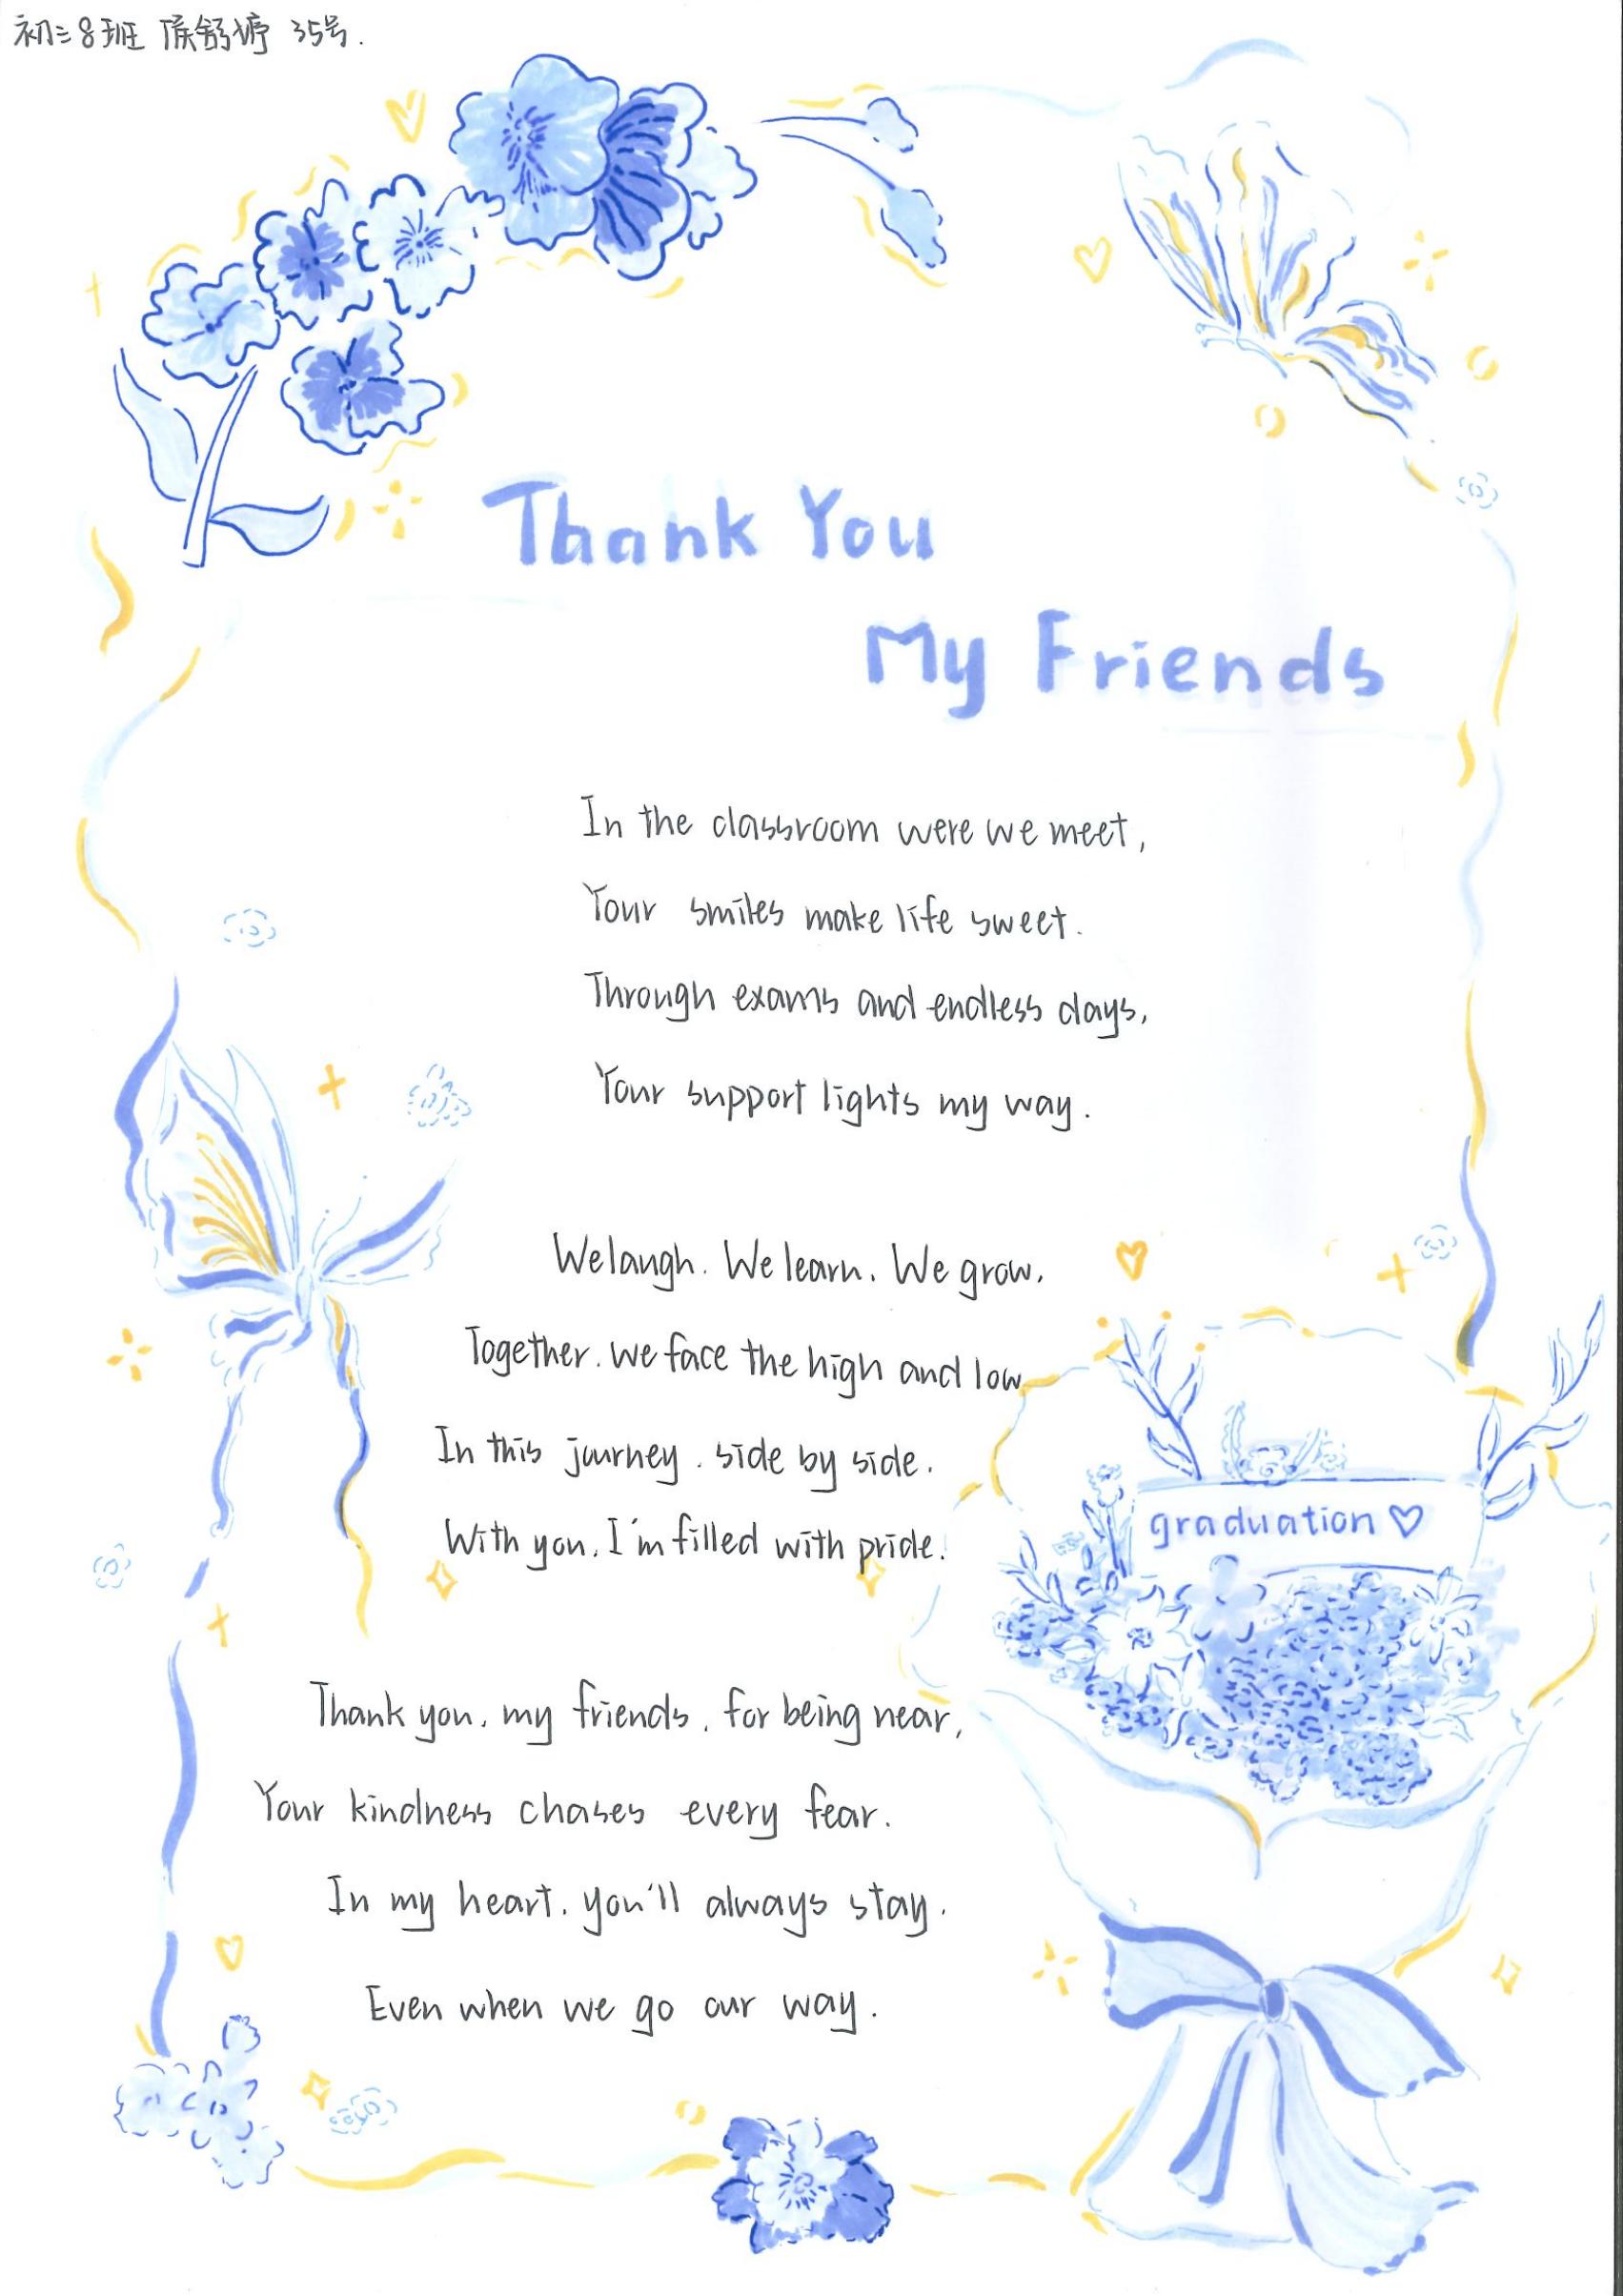 初三8班 侯舒婷 35号.
Thank You
My Friends
In the classroom were we meet,
Your smiles make life sweet.
Through exams and endless days,
Your support lights my way.
We laugh. We learn. We grow.
Together. we face the high and low
In this journey. side by side.
With you. I'm filled with pride.
graduation ♡
Thank you. my friends. for being near,
Your kindness chases every fear.
In my heart. you'll always stay.
Even when we go our way.